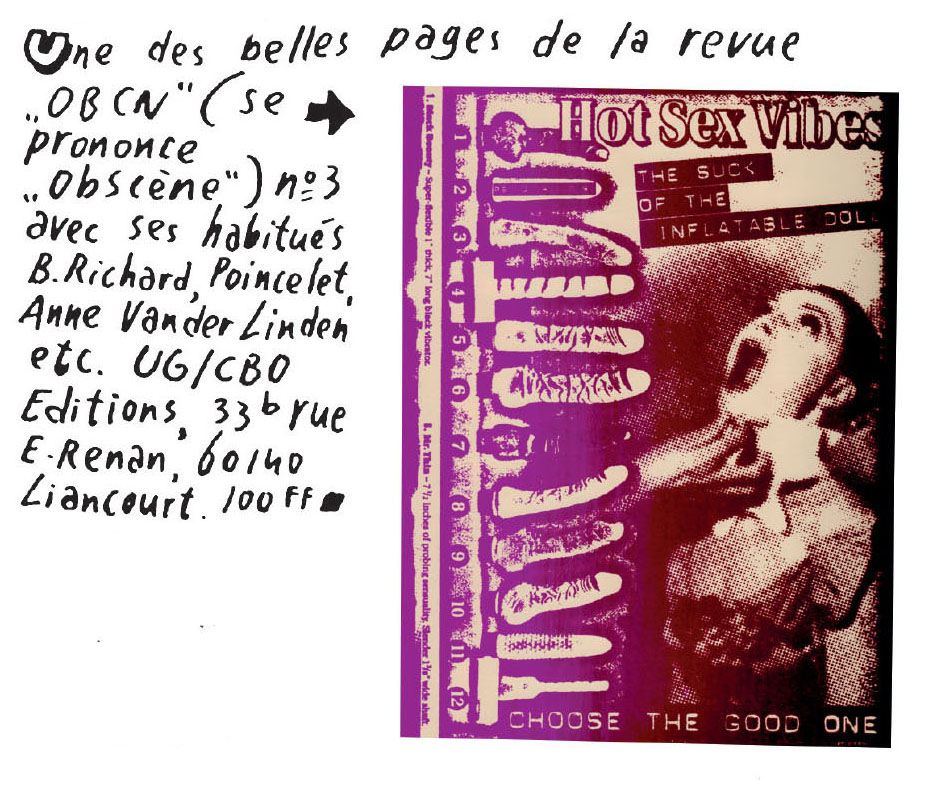 Une des belles pages de la revue
„OBCN" (se
prononce
„Obscène") nº3
avec ses habitués
B.Richard, Poincelet,
Anne Van der Linden
etc. UG/CBO
Editions, 33b rue
E.Renan, 60140
Liancourt. 100 FF
Hot Sex Vibes
THE SUCK
OF THE
INFLATABLE DOLL
1 2 3 4 5 6 7 8 9 10 11 12
Super-flexible 1" thick, 7" long black vibrator.
8. Mr. Thin – 7 1/2 inches of probing sensuality. Slender 1 1/8" wide shaft.
CHOOSE THE GOOD ONE